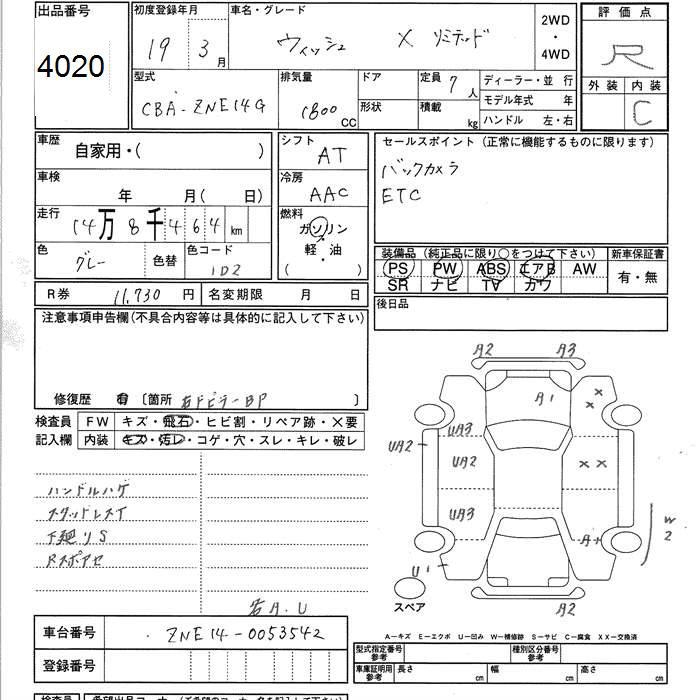 出品番号
4020
初度登録年月
19 年 3 月
車名・グレード
ウィッシュ X リミテッド
2WD
・
4WD
評価点
R
外装 内装
C
型式
CBA-ZNE14G
排気量
1800 CC
ドア
形状
定員 7 人
積載 kg
ディーラー・並 行
モデル年式 年
ハンドル 左・右
車歴
自家用・( )
車検
年 月( 日)
走行
14万8千464 km
色
グレー
色替
色コード
1D2
シフト
AT
冷房
AAC
燃料
ガソリン
・
軽・油
( )
セールスポイント (正常に機能するものに限ります)
バックカメラ
ETC
装備品 (純正品に限り○をつけて下さい)
PS PW ABS エアB AW
SR ナビ TV カワ
新車保証書
有・無
後日品
R券 11,730 円
名変期限 月 日
注意事項申告欄(不具合内容等は具体的に記入して下さい)
修復歴 有 [箇所 右FピラーBP ]
検査員
記入欄
FW キズ・飛石・ヒビ割・リペア跡・×要
内装 キズ・汚レ・コゲ・穴・スレ・キレ・破レ
ハンドルハゲ
スタッドレスT
下廻りS
右A.U
A2 A3
A1
X
X
UA3
UA2
UA2
X X
UA3
W
2
A1
U1
A2
スペア
A−キズ E−エクボ U−凹み W−補修跡 S−サビ C−腐食 XX−交換済
車台番号
ZNE14-0053542
登録番号
型式指定番号
参考
種別区分番号
参考
車庫証明用
参考
長さ cm
幅 cm
高さ cm